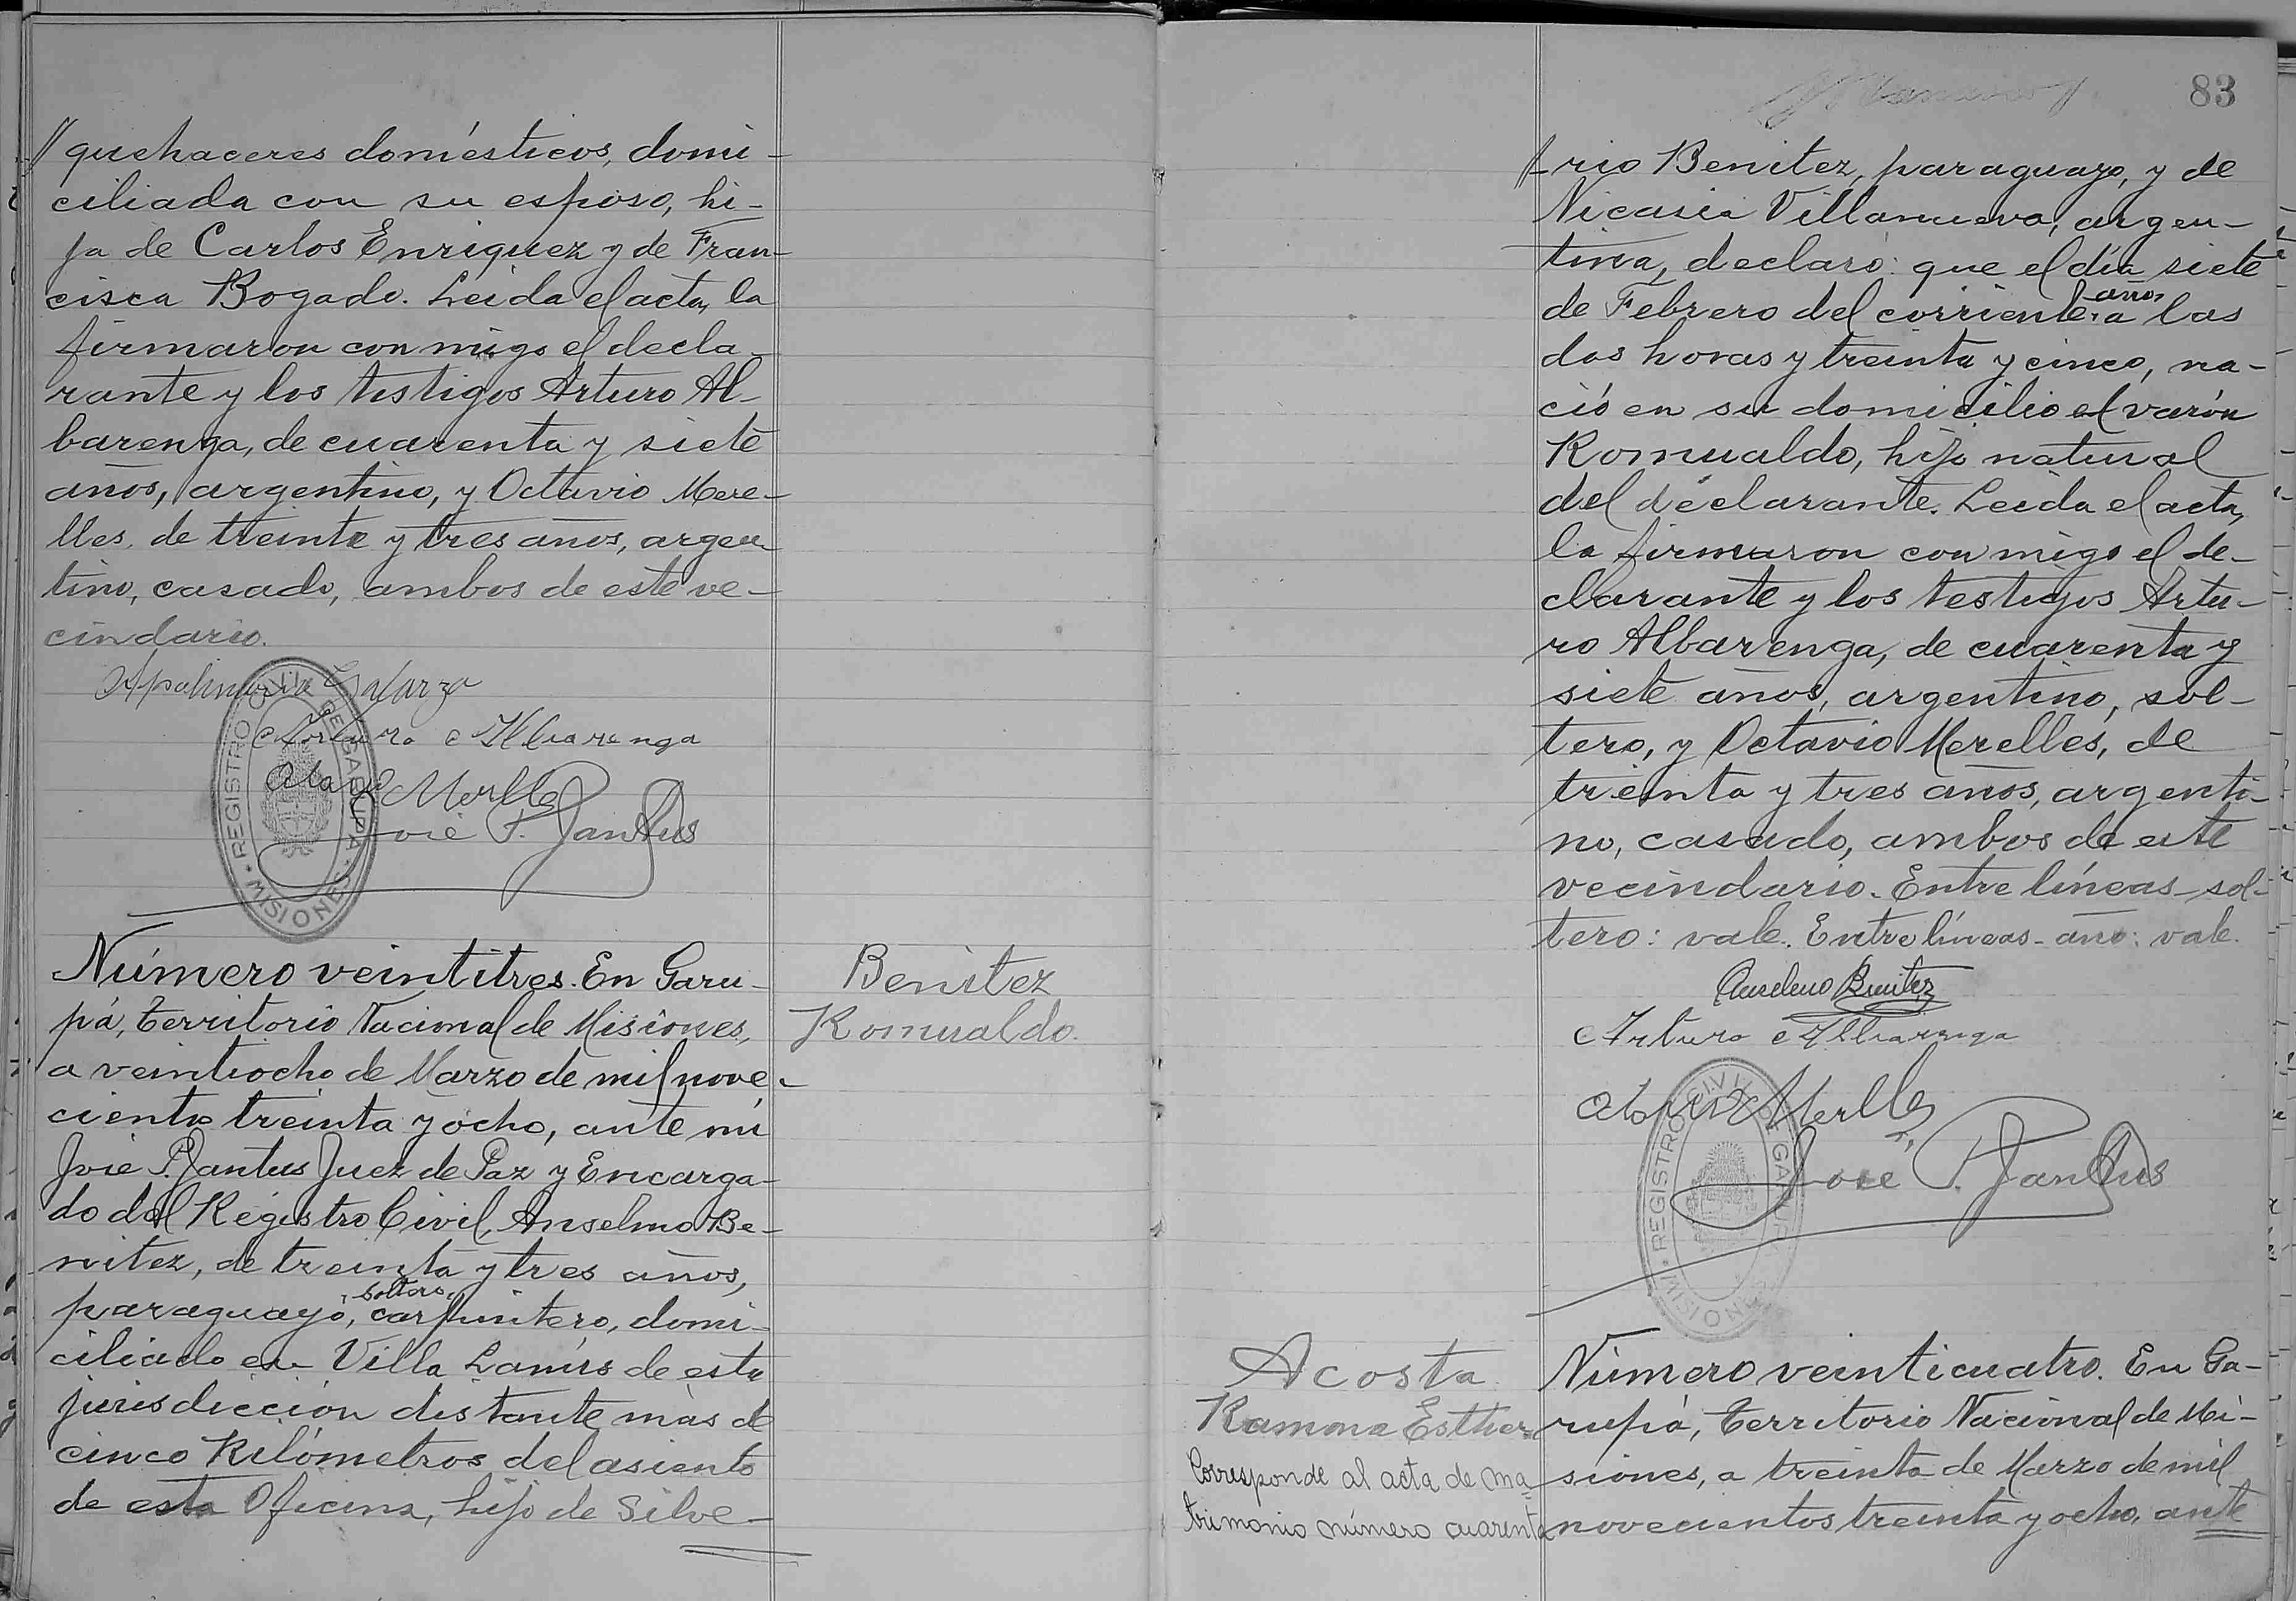 // quehaceres domésticos, domi-
ciliada con su esposo, hi-
ja de Carlos Enriquez y de Fran-
cisca Bogado. Leida el acta, la
firmaron conmigo el decla-
rante y los testigos Arturo Al-
barenga, de cuarenta y siete
años, argentino, y Octavio Mere-
lles, de treinta y tres años, argen-
tino, casado, ambos de este ve-
cindario.
Arturo Albarenga
José P. Jantus
REGISTRO CIVIL DE GARUPA
MISIONES
Número veintitres. En Garu-
pá, Territorio Nacional de Misiones,
a veintiocho de Marzo de mil nove-
cientos treinta y ocho, ante mi
José P. Jantus Juez de Paz y Encarga-
do del Registro Civil, Anselmo Be-
nitez, de treinta y tres años,
soltero,
paraguayo, carpintero, domi-
ciliado en Villa Lanús de esta
jurisdicción distante más de
cinco Kilómetros del asiento
de esta Oficina, hijo de Silve-
Benitez
Romualdo.
83
//rio Benitez, paraguayo, y de
Nicasia Villanueva, argen-
tina, declaró: que el día siete
año,
de Febrero del corriente a las
dos horas y treinta y cinco, na-
ció en su domicilio el varón
Romualdo, hijo natural
del declarante. Leida el acta,
la firmaron conmigo el de-
clarante y los testigos Artu-
ro Albarenga, de cuarenta y
siete años, argentino, sol-
tero, y Octavio Merelles, de
treinta y tres años, argenti-
no, casado, ambos de este
vecindario. Entre líneas-sol-
tero: vale. Entre líneas-año: vale.
Anselmo Benitez
Arturo Albarenga
José P. Jantus
REGISTRO CIVIL DE GARUPA
MISIONES
Acosta
Ramona Esther
Corresponde al acta de ma-
trimonio número cuarenta
Número veinticuatro. En Ga-
rupá, Territorio Nacional de Mi-
siones, a treinta de Marzo de mil
novecientos treinta y ocho, ante